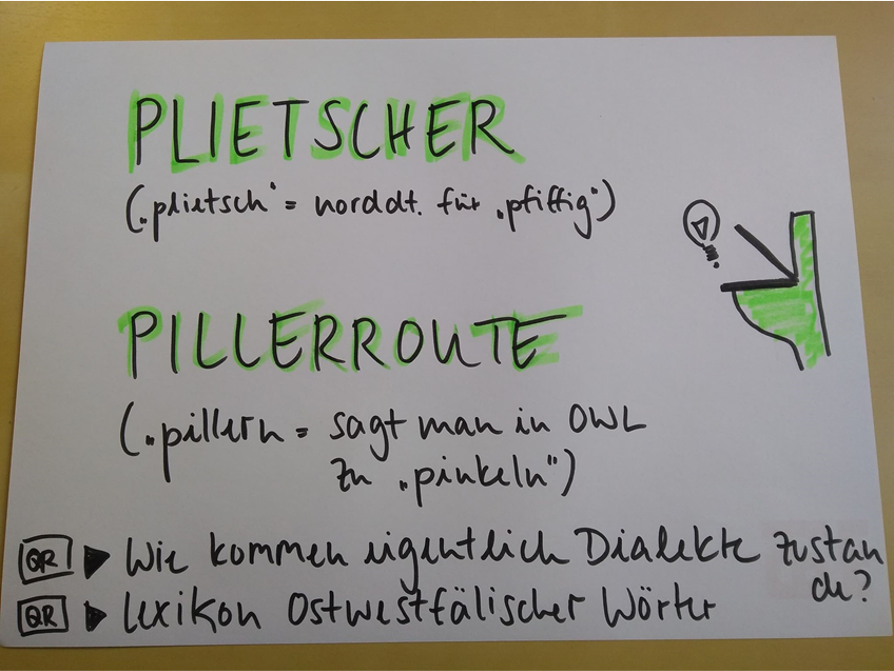 PLIETSCHER
(„plietsch" = norddt. für „pfiffig")
PILLERROUTE
(„pillern = sagt man in OWL
zu „pinkeln")
QR ▶ Wie kommen eigentlich Dialekte zustan
de?
QR ▶ Lexikon Ostwestfälischer Wörter